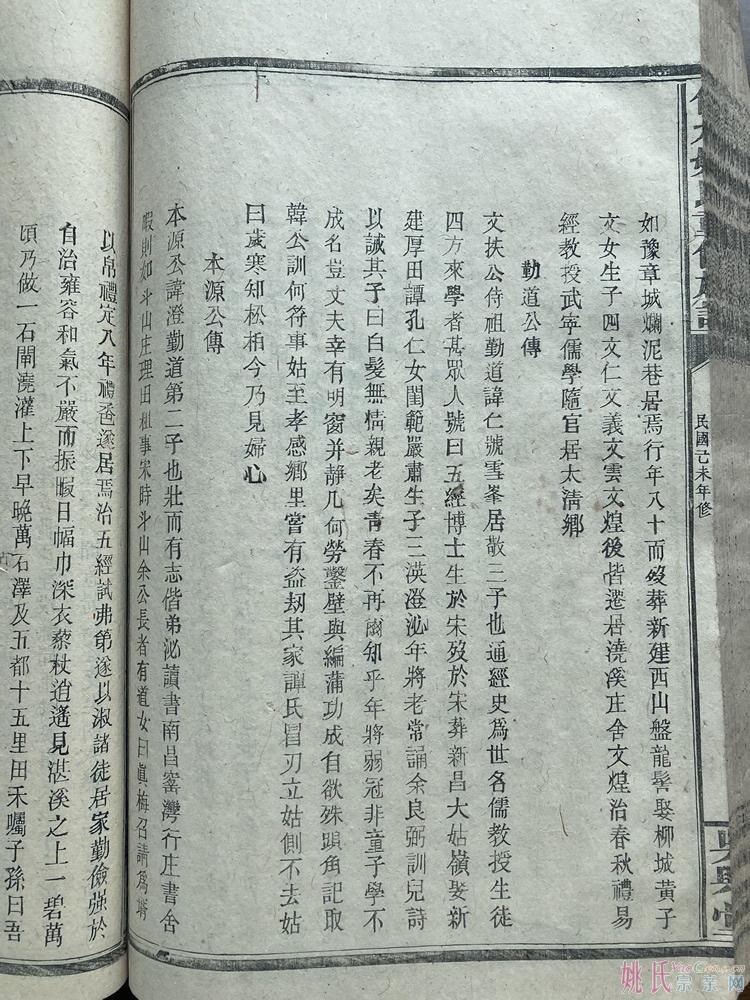 民國己未年修
如豫章城爛泥巷居焉行年八十而歿葬新建西山盤龍髻娶柳城黃子
文女生子四文仁文義文雲文煌後皆遷居澆溪庄舍文煌治春秋禮易
經教授武寧儒學隨官居太清鄉
勤道公傳
文扶公侍祖勤道諱仁號雪峯居敬三子也通經史爲世名儒教授生徒
四方來學者甚眾人號曰五經博士生於宋歿於宋葬新昌大姑嶺娶新
建厚田譚孔仁女閨範嚴肅生子三渶澄泌年將老常誦余良弼訓兒詩
以誠其子曰白髮無情親老矣青春不再爾知乎年將弱冠非童子學不
成名豈丈夫幸有明窗并静几何勞鑿壁與編蒲功成自欲殊頭角記取
韓公訓何符事姑至孝感鄉里嘗有盜刼其家譚氏冒刃立姑側不去姑
曰歲寒知松柏今乃見婦心
本源公傳
本源公諱澄勤道第二子也壯而有志偕弟泌讀書南昌窰灣行庄書舍
暇則如斗山庄理田租事宋時斗山余公長者有道女曰眞梅召請爲壻
以帛禮定入年禮卺遂居焉治五經試弗第遂以淑諸徒居家勤儉強於
自治雍容和氣不嚴而振暇日幅巾深衣藜杖逍遙見湛溪之上一碧萬
頃乃做一石閘澆灌上下早晚萬石澤及五都十五里田禾囑子孫曰吾
姚氏宗亲网
YaoGens.cn